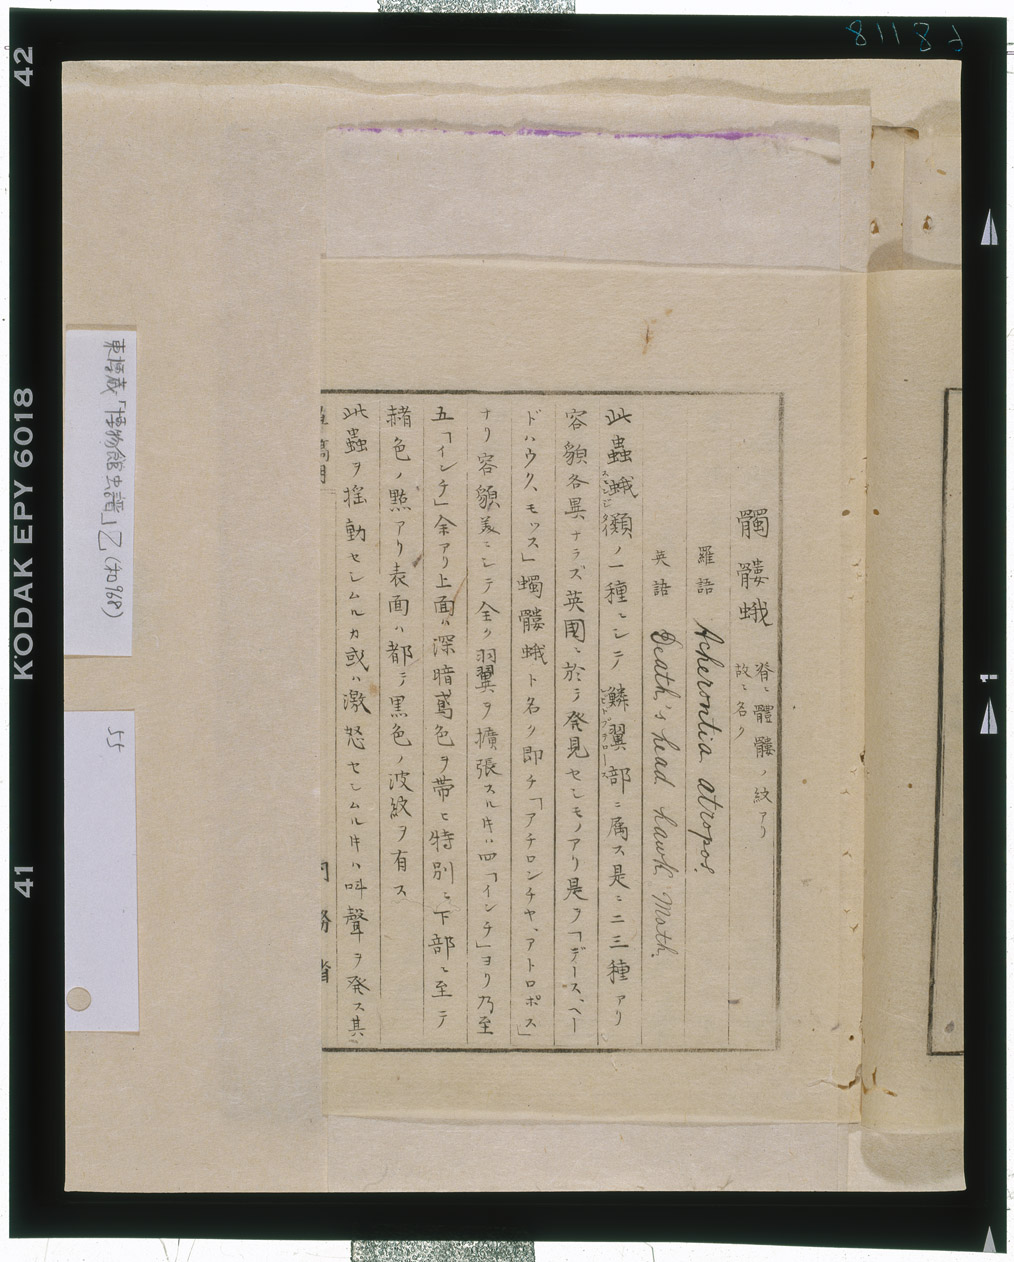 髑髏蛾 脊ニ髑髏ノ紋アリ
故ニ名ク
羅語 Acherontia atropos.
英語 Death's head hawk, Moth.
此蟲蛾類ノ一種ニシテ鱗翼部ニ属ス是ニ二三種アリ
容貌各異ナラズ英國ニ於テ発見セシモノアリ是ヲ「デースヘー
ドハウク、モッス」髑髏蛾ト名ク即チ「アチロンチヤ、アトロポス」
ナリ容貌美ニシテ全ク羽翼ヲ擴張スル片ハ四「インチ」ヨリ乃至
五「インチ」余アリ上面ハ深暗鳶色ヲ帯ヒ特別ニ下部ニ至テ
赭色ノ點アリ表面ハ都テ黒色ノ波紋ヲ有ス
此蟲ヲ揺動セシムルカ或ハ激怒セシムル片ハ叫聲ヲ発ス其
内務省
東博蔵「博物館虫譜」乙(和968)
55
81182
42
KODAK EPY 6018
41
1